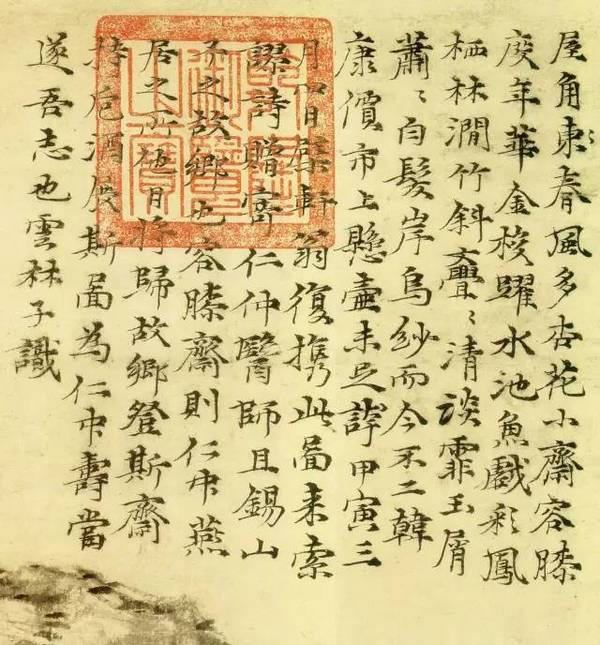 屋角東春風多杏花小齋容膝
度年華金梭躍水池魚戲彩鳳
栖林澗竹斜亹〻清談霏玉屑
蕭〻白髮岸烏紗而今不二韓
康價市上懸壺未足誇甲寅三
月四日檗軒翁復携此啚來索
謬詩贈寄仁仲醫師且錫山
予之故鄉也容膝齋則仁中燕
居之所他日將歸故鄉登斯齋
持卮酒展斯啚為仁中壽當
遂吾志也雲林子識